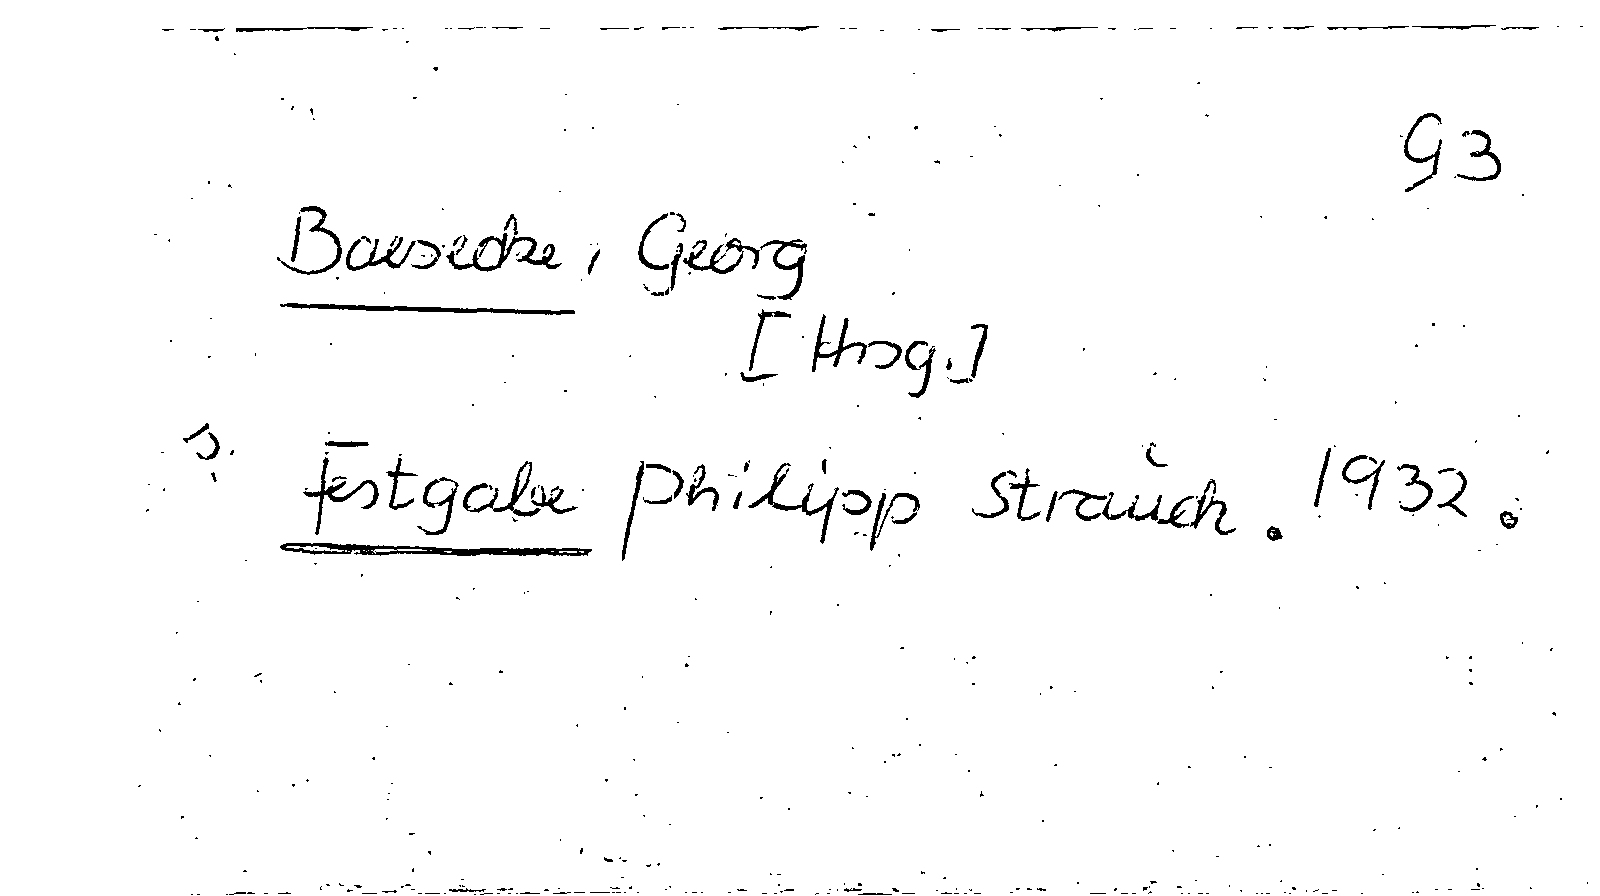 G3
Baesecke, Georg
[Hrsg.]
s. Festgabe Philipp Strauch. 1932.